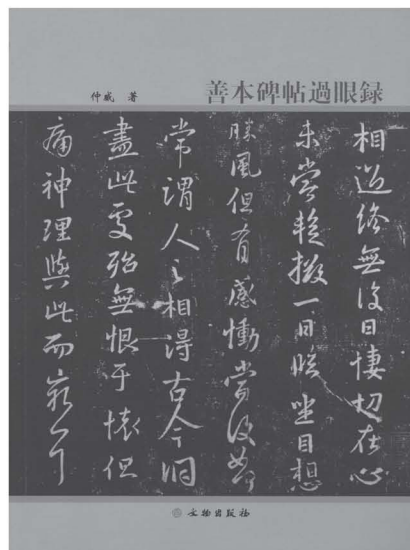 善本碑帖過眼録
仲威 著
相過終無復日悽切在心
未嘗暫掇一日臨坐目想
勝風但有感慟當復如何
常謂人之相得古今洞
盡此處殆無恨于懷但
痛神理與此而窮耳
文物出版社